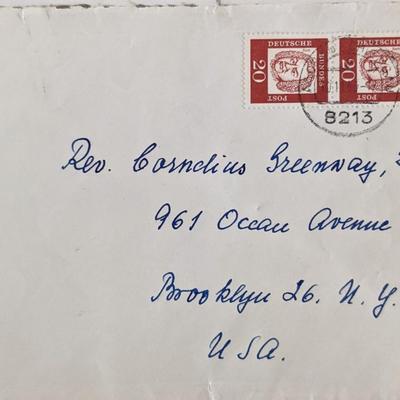 20 DEUTSCHE BUNDES POST
20 DEUTSCHE POST
8213
Rev. Cornelius Greenway,
961 Ocean Avenue
Brooklyn 26. N. Y.
USA.